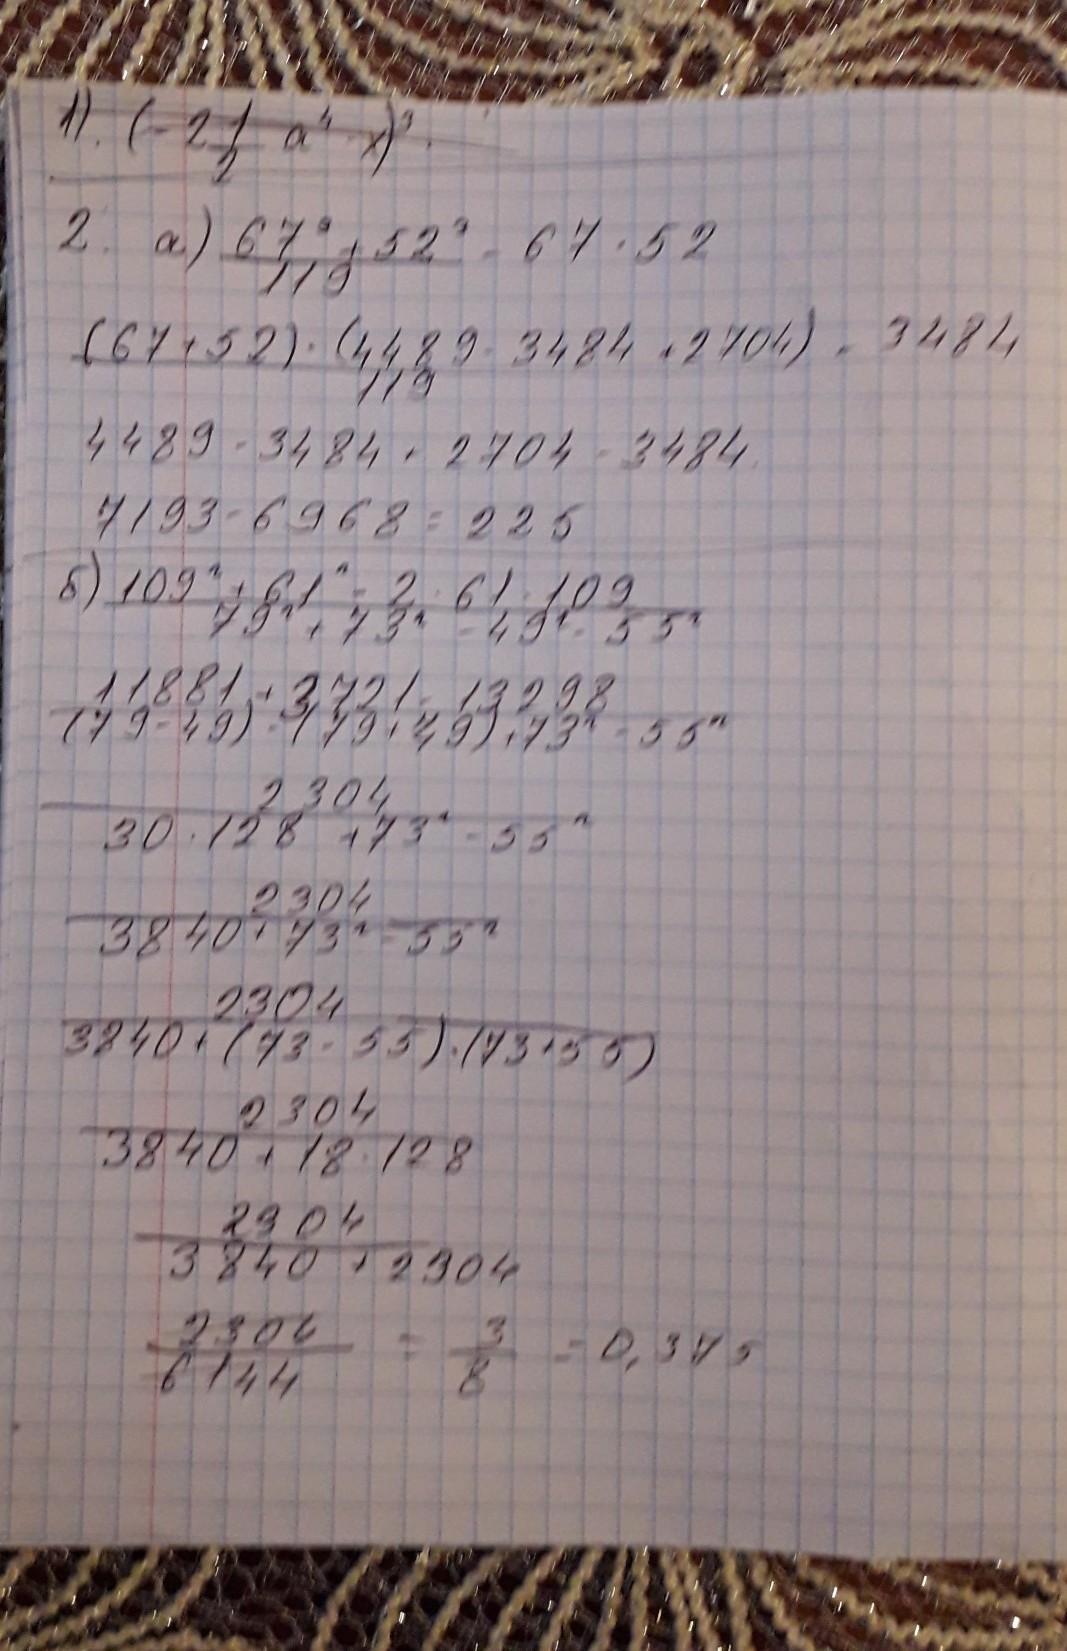 1). (-2 1/2 a⁴ - x)³.
2. а) (67³ + 52³)/119 - 67 · 52
((67 + 52) · (4489 - 3484 + 2704))/119 - 3484
4489 - 3484 + 2704 - 3484
7193 - 6968 = 225
б) (109² + 61² - 2 · 61 · 109)/(79² + 73² - 49² - 55²)
(11881 + 3721 - 13298)/((79 - 49) · (79 + 49) + 73² - 55²)
2304/(30 · 128 + 73² - 55²)
2304/(3840 + 73² - 55²)
2304/(3840 + (73 - 55) · (73 + 55))
2304/(3840 + 18 · 128)
2304/(3840 + 2304)
2304/6144 = 3/8 = 0,375